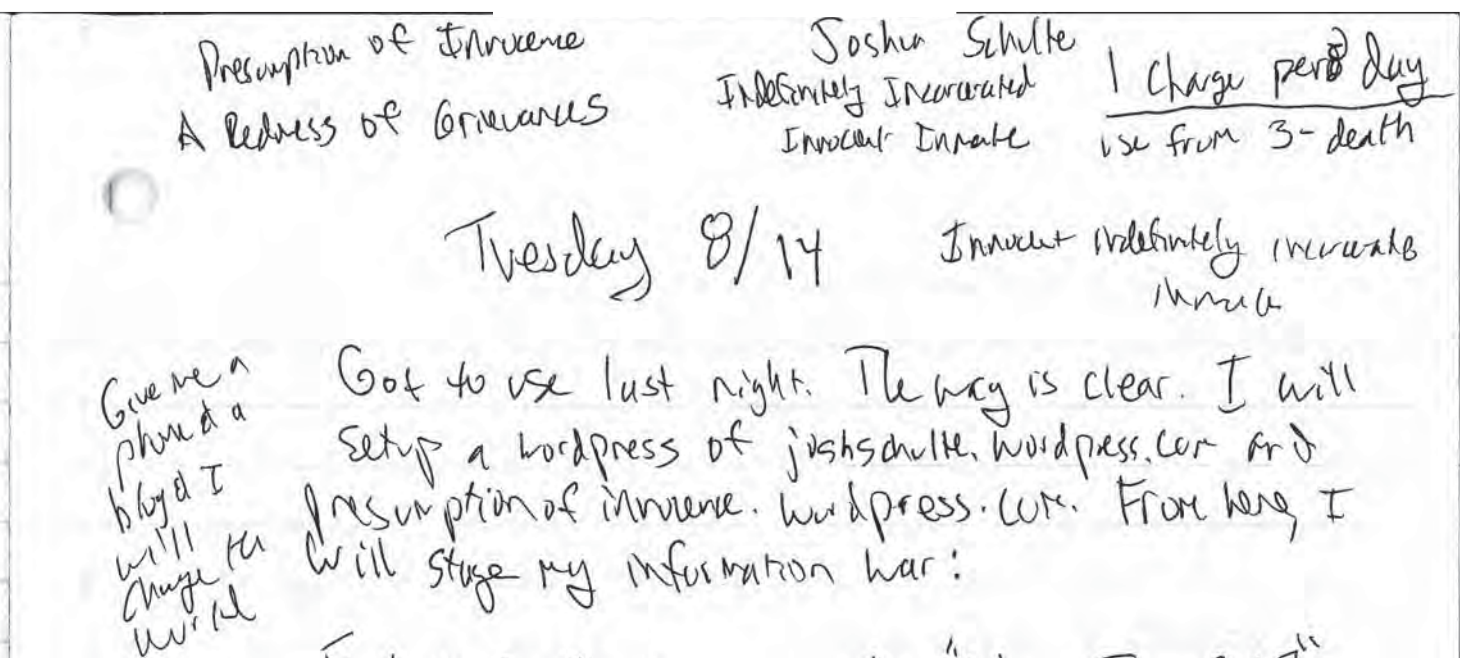 Presumption of Innocence
A Redress of Grievances
Joshua Schulte
Indefinitely Incarcerated
Innocent Inmate
1 charge per day
use from 3 - death
Tuesday 8/14
Innocent indefinitely incarcerated
Give me a
phone & a
blog & I
will
change the
world
Got to use last night. The way is clear. I will
setup a wordpress of joshschulte.wordpress.com and
presumptionofinnocence.wordpress.com. From here, I
will stage my information war: